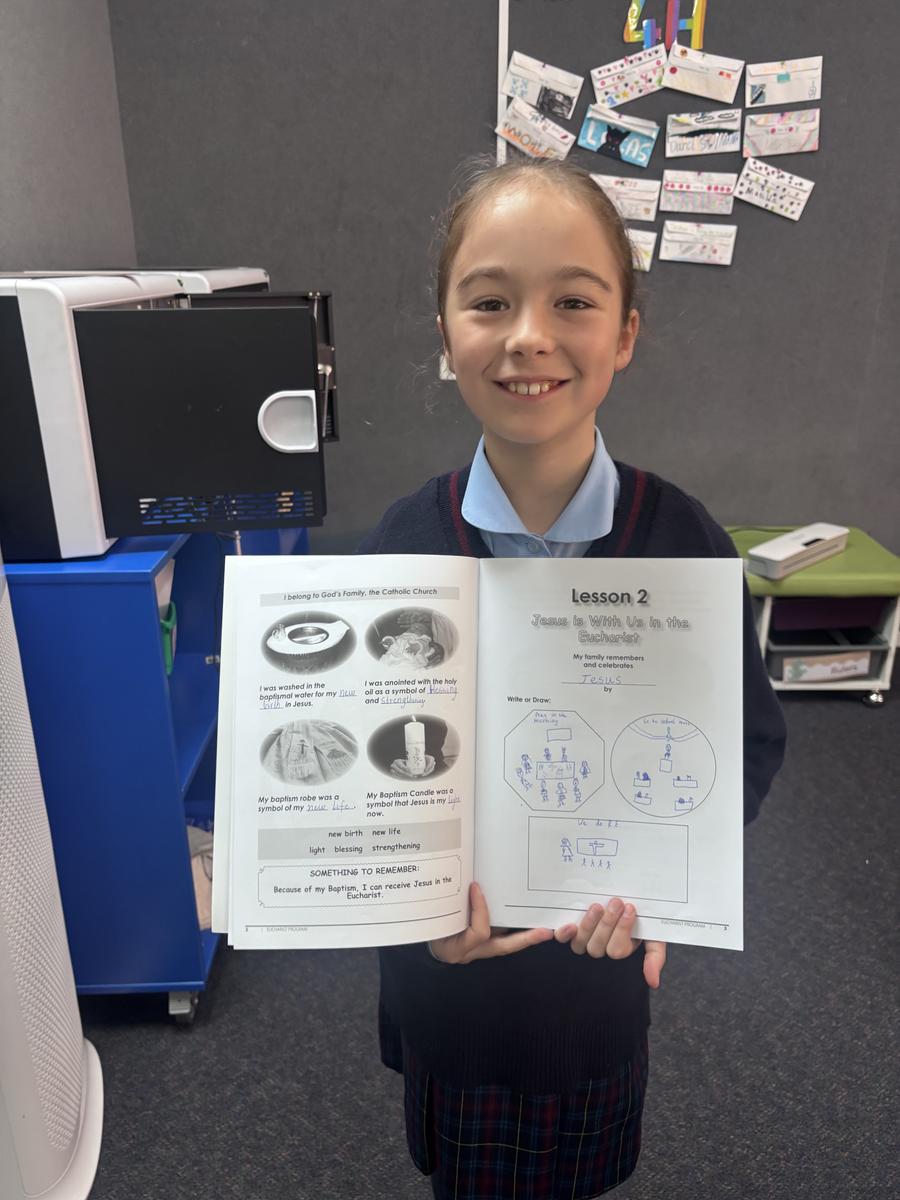 4H
LUCAS
I belong to God's Family, the Catholic Church
I was washed in the
baptismal water for my new
birth in Jesus.
I was anointed with the holy
oil as a symbol of blessing
and strengthening
My baptism robe was a
symbol of my new life.
My Baptism Candle was a
symbol that Jesus is my light
now.
new birth new life
light blessing strengthening
SOMETHING TO REMEMBER:
Because of my Baptism, I can receive Jesus in the
Eucharist.
2 | EUCHARIST PROGRAM
Lesson 2
Jesus is With Us in the
Eucharist
My family remembers
and celebrates
Jesus
by
Write or Draw:
Pray in the
morning
Go to school mass
We do R.E.
EUCHARIST PROGRAM | 3
Rulers